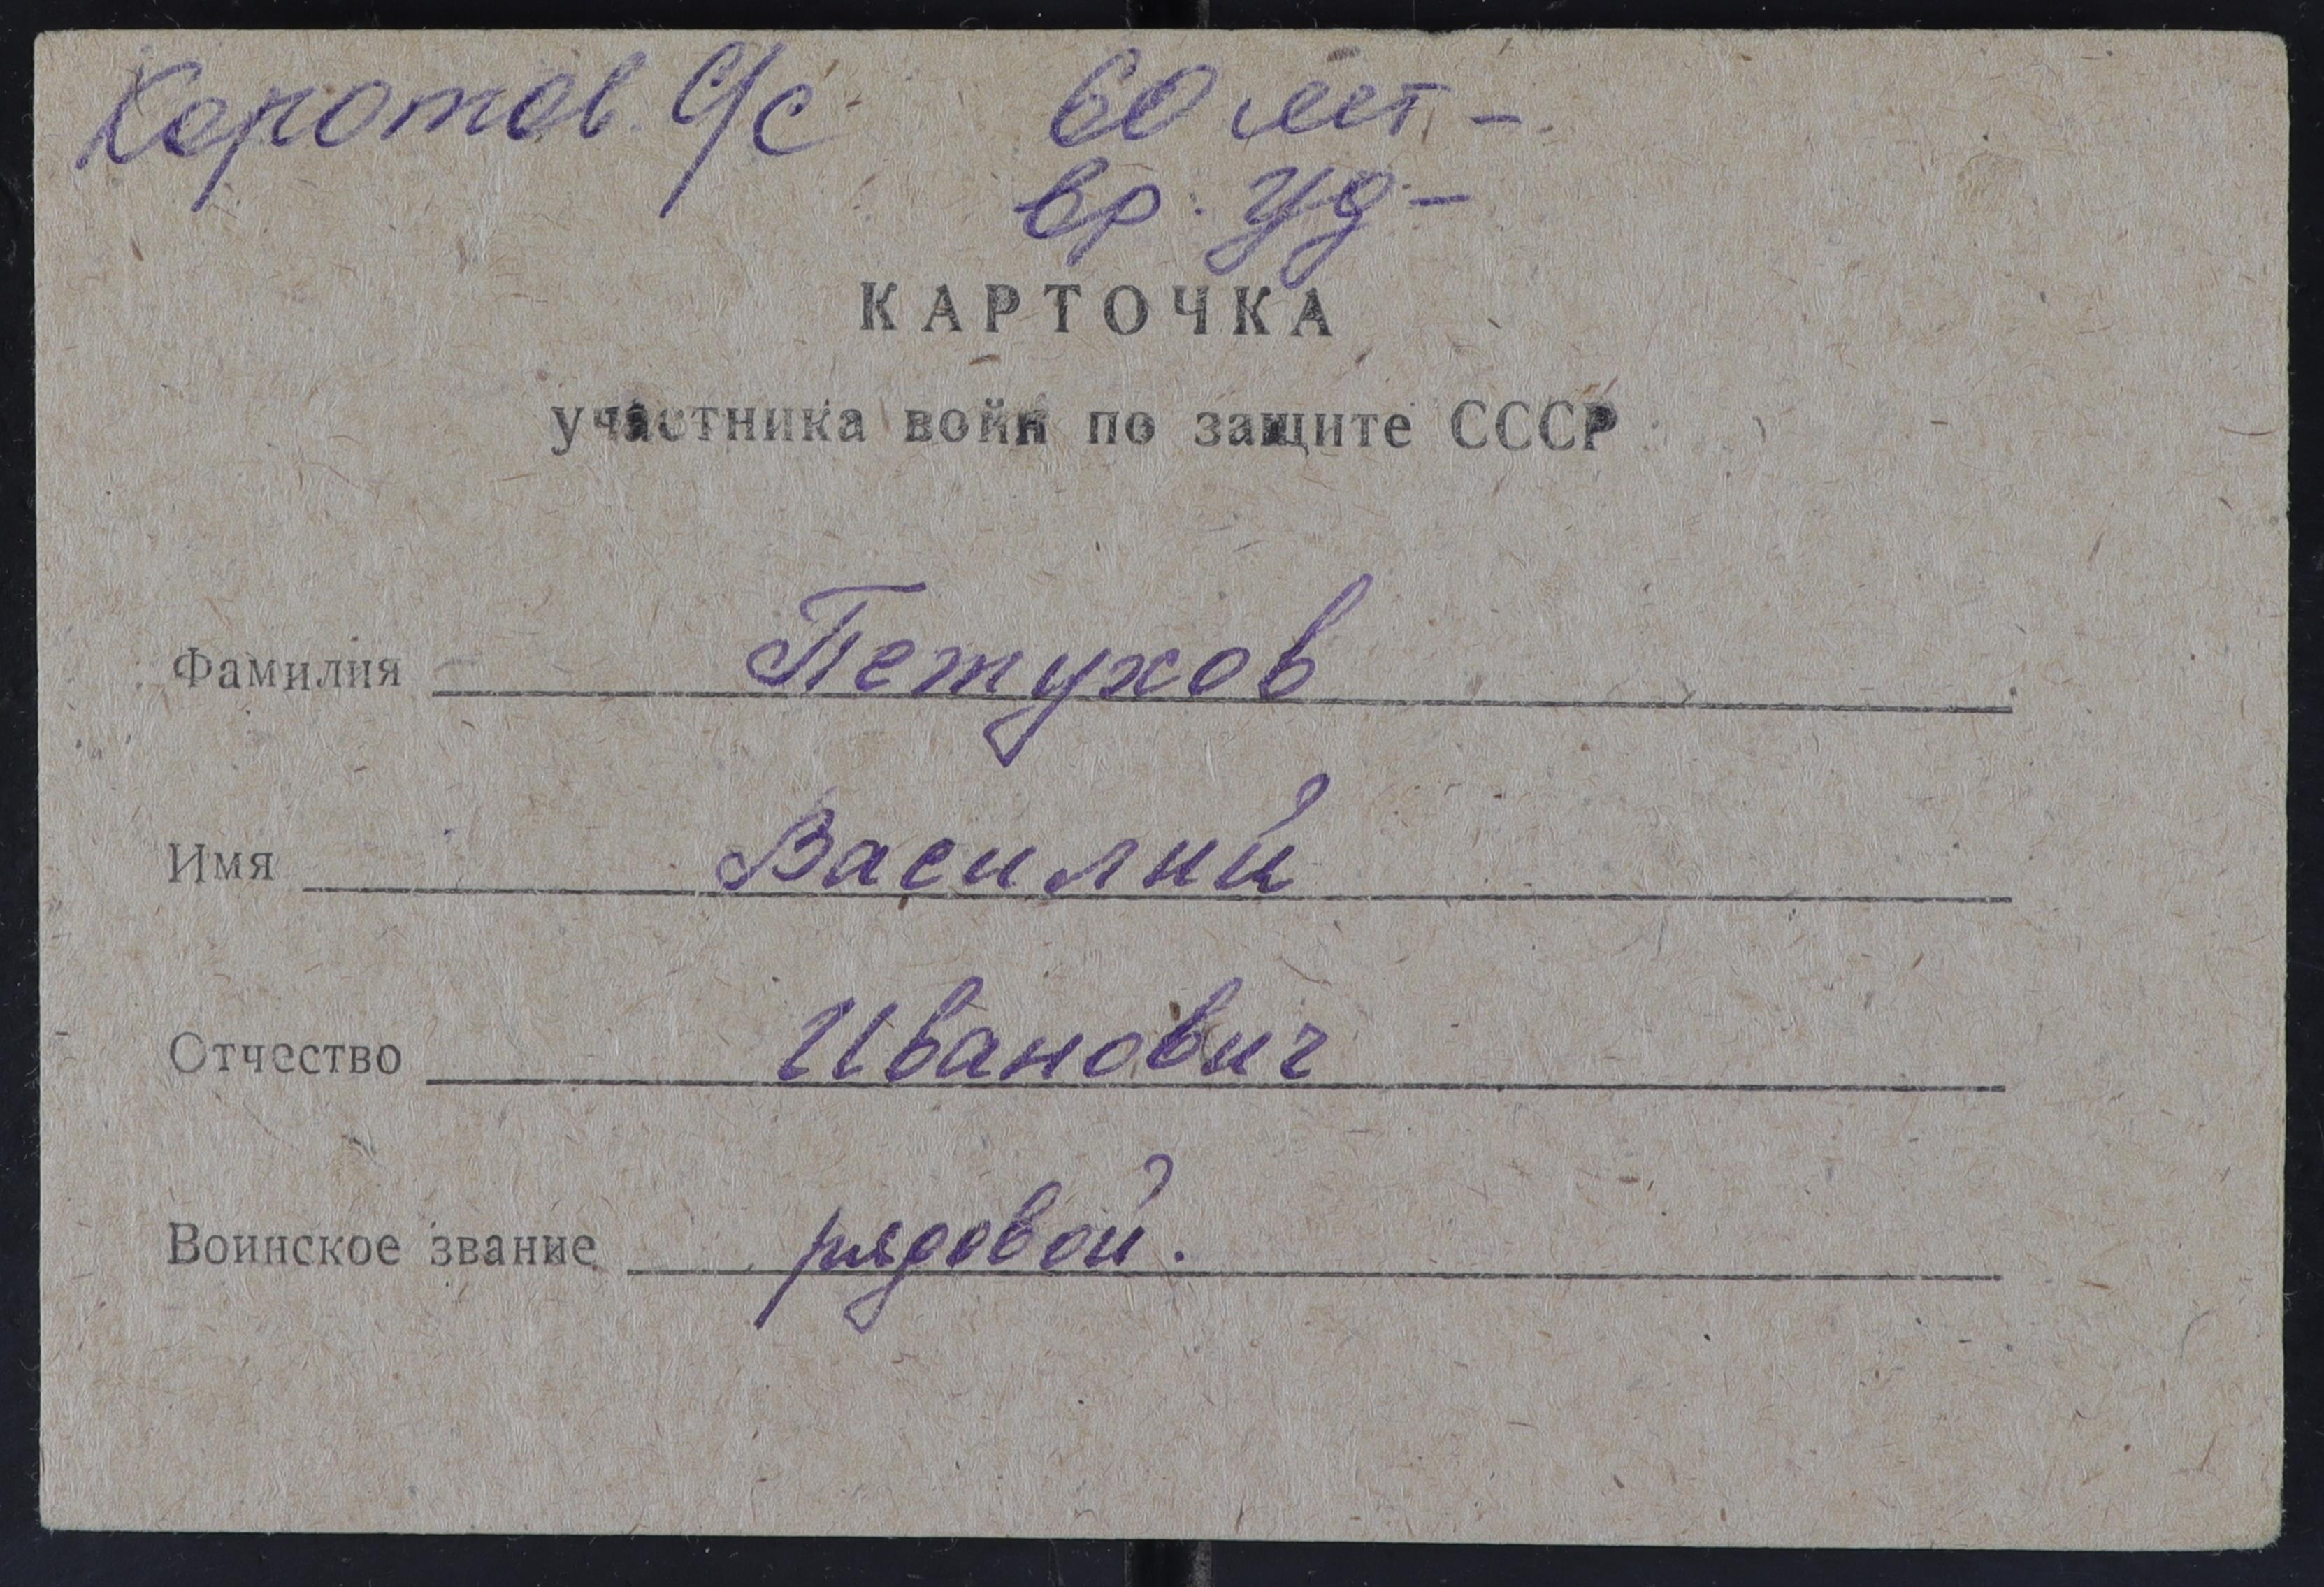 Коротов. С/с 60 лет -
вр. уд -
КАРТОЧКА
участника войн по защите СССР
Фамилия Петухов
Имя Василий
Отчество Иванович
Воинское звание рядовой.